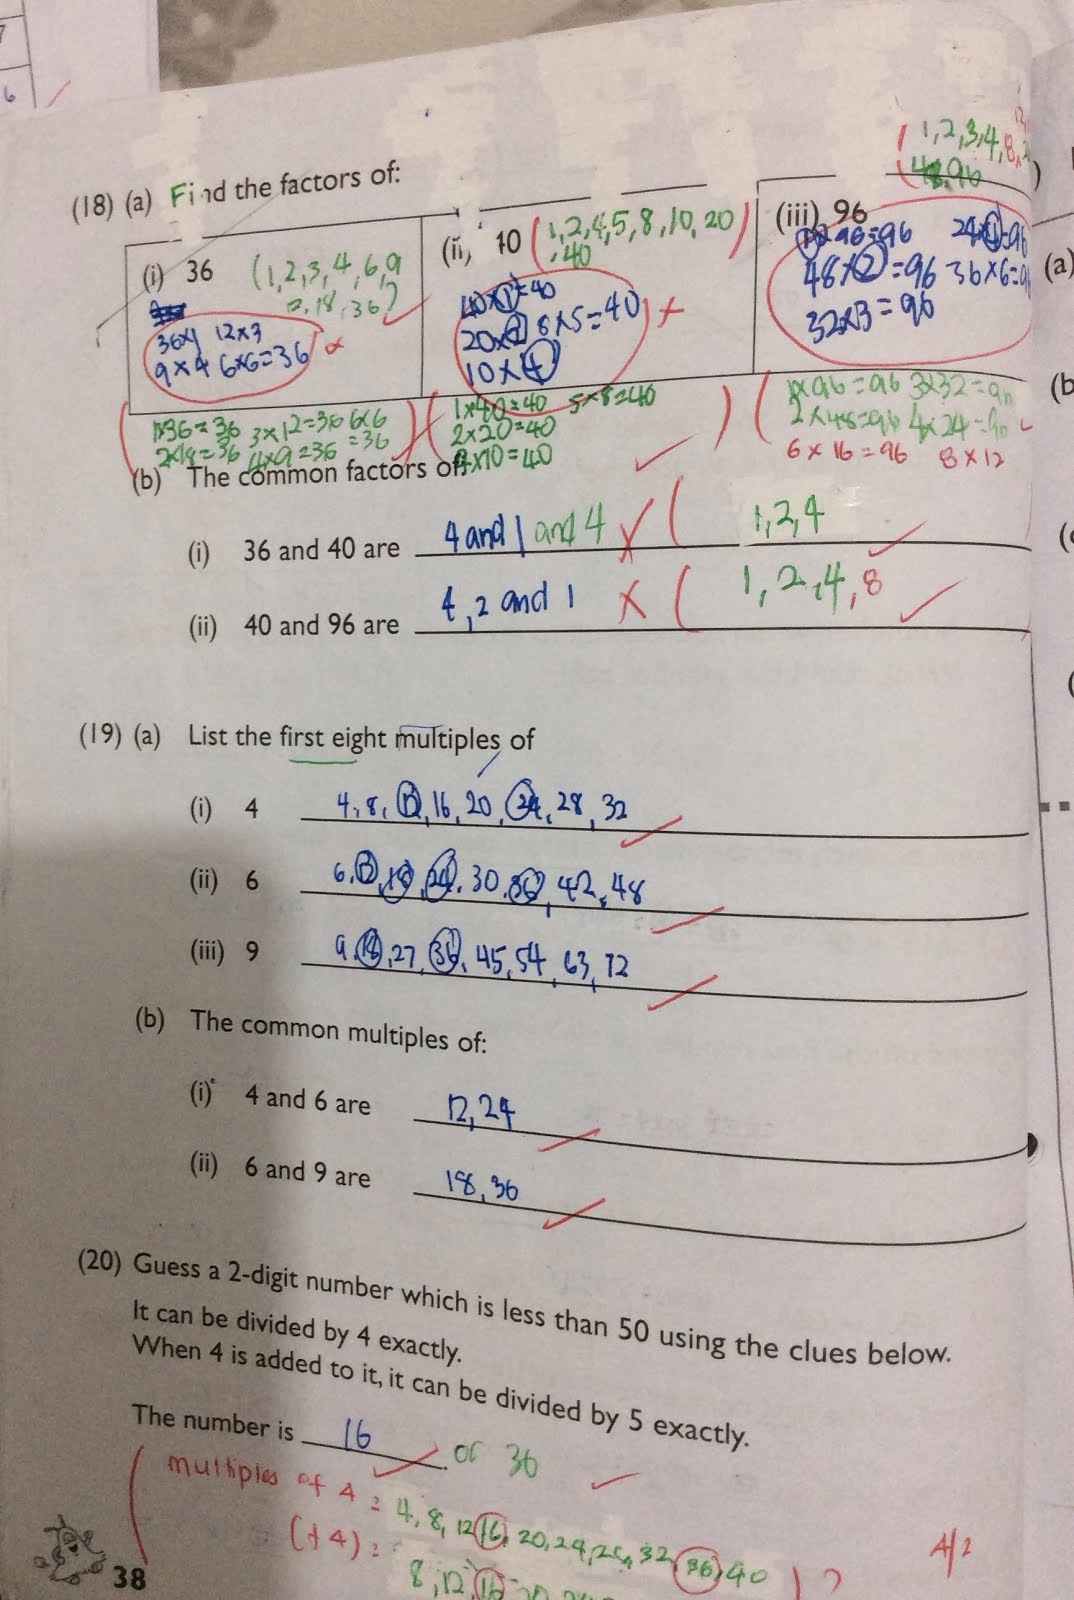 1,2,3,4,8,
48,96
(18) (a) Find the factors of:
(i) 36 (1,2,3,4,6,9
12,18,36)
36x1 12x3
9x4 6x6=36
(ii) 40 (1,2,4,5,8,10,20
,40)
40x1=40
20x2 8x5=40
10x4
(iii) 96
1x96=96 24x4=96
48x2=96 36x6=9
32x3=96
1x36=36 3x12=36 6x6
2x18=36 4x9=36 =36
1x40=40 5x8=40
2x20=40
4x10=40
1x96=96 3x32=96
2x48=96 4x24=96
6x16=96 8x12
(b) The common factors of:
(i) 36 and 40 are 4 and 1 and 4 ( 1,2,4
(ii) 40 and 96 are 4,2 and 1 ( 1,2,4,8
(19) (a) List the first eight multiples of
(i) 4 4,8,12,16,20,24,28,32
(ii) 6 6,12,18,24,30,36,42,48
(iii) 9 9,18,27,36,45,54,63,72
(b) The common multiples of:
(i) 4 and 6 are 12,24
(ii) 6 and 9 are 18,36
(20) Guess a 2-digit number which is less than 50 using the clues below.
It can be divided by 4 exactly.
When 4 is added to it, it can be divided by 5 exactly.
The number is 16 or 36
multiples of 4 = 4,8,12,16,20,24,28,32,36,40
(+4) = 8,12,16
4/2
38
(a)
(b